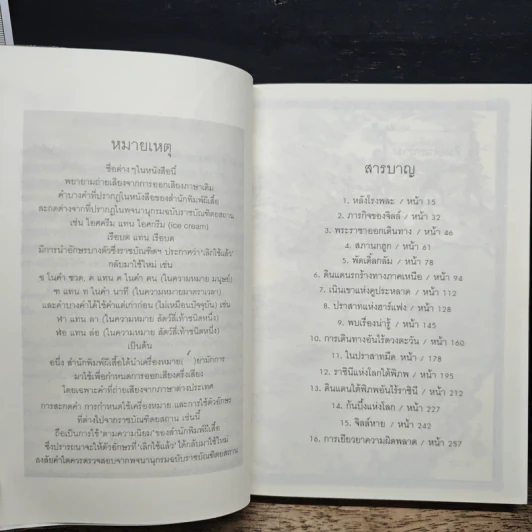 หมายเหตุ
ชื่อต่างๆในหนังสือนี้
พยายามถ่ายเสียงจากการออกเสียงภาษาเดิม
คำบางคำที่ปรากฏในหนังสือของสำนักพิมพ์ผีเสื้อ
สะกดต่างจากที่ปรากฏในพจนานุกรมฉบับราชบัณฑิตยสถาน
เช่น ไอศครีม แทน ไอศกรีม (ice cream)
เรือบด แทน เรือบต
มีการนำอักษรบางตัวซึ่งราชบัณฑิตฯ ประกาศว่า'เลิกใช้แล้ว'
กลับมาใช้ใหม่ เช่น
ฃ ในคำ ฃวด, ฅ แทน ค ในคำ ฅน (ในความหมาย มนุษย์)
ฑ แทน ท ในคำ นาฑี (ในความหมายมาตราเวลา)
และคำบางคำได้ใช้คำแต่เก่าก่อน (ไม่เหมือนปัจจุบัน) เช่น
ฬา แทน ลา (ในความหมาย สัตว์สี่เท้าชนิดหนึ่ง)
ฬ่อ แทน ล่อ (ในความหมาย สัตว์สี่เท้าชนิดหนึ่ง)
เป็นต้น
อนึ่ง สำนักพิมพ์ผีเสื้อได้นำเครื่องหมาย( ) ยามักการ
มาใช้เพื่อกำหนดการออกเสียงครึ่งเสียง
โดยเฉพาะคำที่ถ่ายเสียงจากภาษาต่างประเทศ
การสะกดคำ การกำหนดใช้เครื่องหมาย และการใช้ตัวอักษร
ที่ต่างไปจากราชบัณฑิตยสถาน เช่นนี้
ถือเป็นการใช้'ตามความนิยม'ของสำนักพิมพ์ผีเสื้อ
ซึ่งปรารถนาจะให้ตัวอักษรที่'เลิกใช้แล้ว'ได้กลับมาใช้ใหม่
สงสัยคำใดควรตรวจสอบจากพจนานุกรมฉบับราชบัณฑิตยสถาน
สารบาญ
1. หลังโรงพละ / หน้า 15
2. ภารกิจของจิลล์ / หน้า 32
3. พระราชาออกเดินทาง / หน้า 46
4. สภานกฮูก / หน้า 61
5. พัดเดิ้ลกลัม / หน้า 78
6. ดินแดนรกร้างทางภาคเหนือ / หน้า 94
7. เนินเขาแห่งคูประหลาด / หน้า 112
8. ปราสาทแห่งฮาร์แฟง / หน้า 128
9. พบเรื่องน่ารู้ / หน้า 145
10. การเดินทางอันไร้ดวงตะวัน / หน้า 160
11. ในปราสาทมืด / หน้า 178
12. ราชินีแห่งโลกใต้พิภพ / หน้า 195
13. ดินแดนใต้พิภพอันไร้ราชินี / หน้า 212
14. ก้นบึ้งแห่งโลก / หน้า 227
15. จิลล์หาย / หน้า 242
16. การเยียวยาความผิดพลาด / หน้า 257